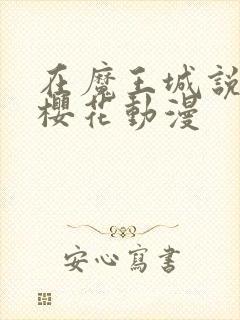 在魔王城說
櫻花動漫
安心寫書